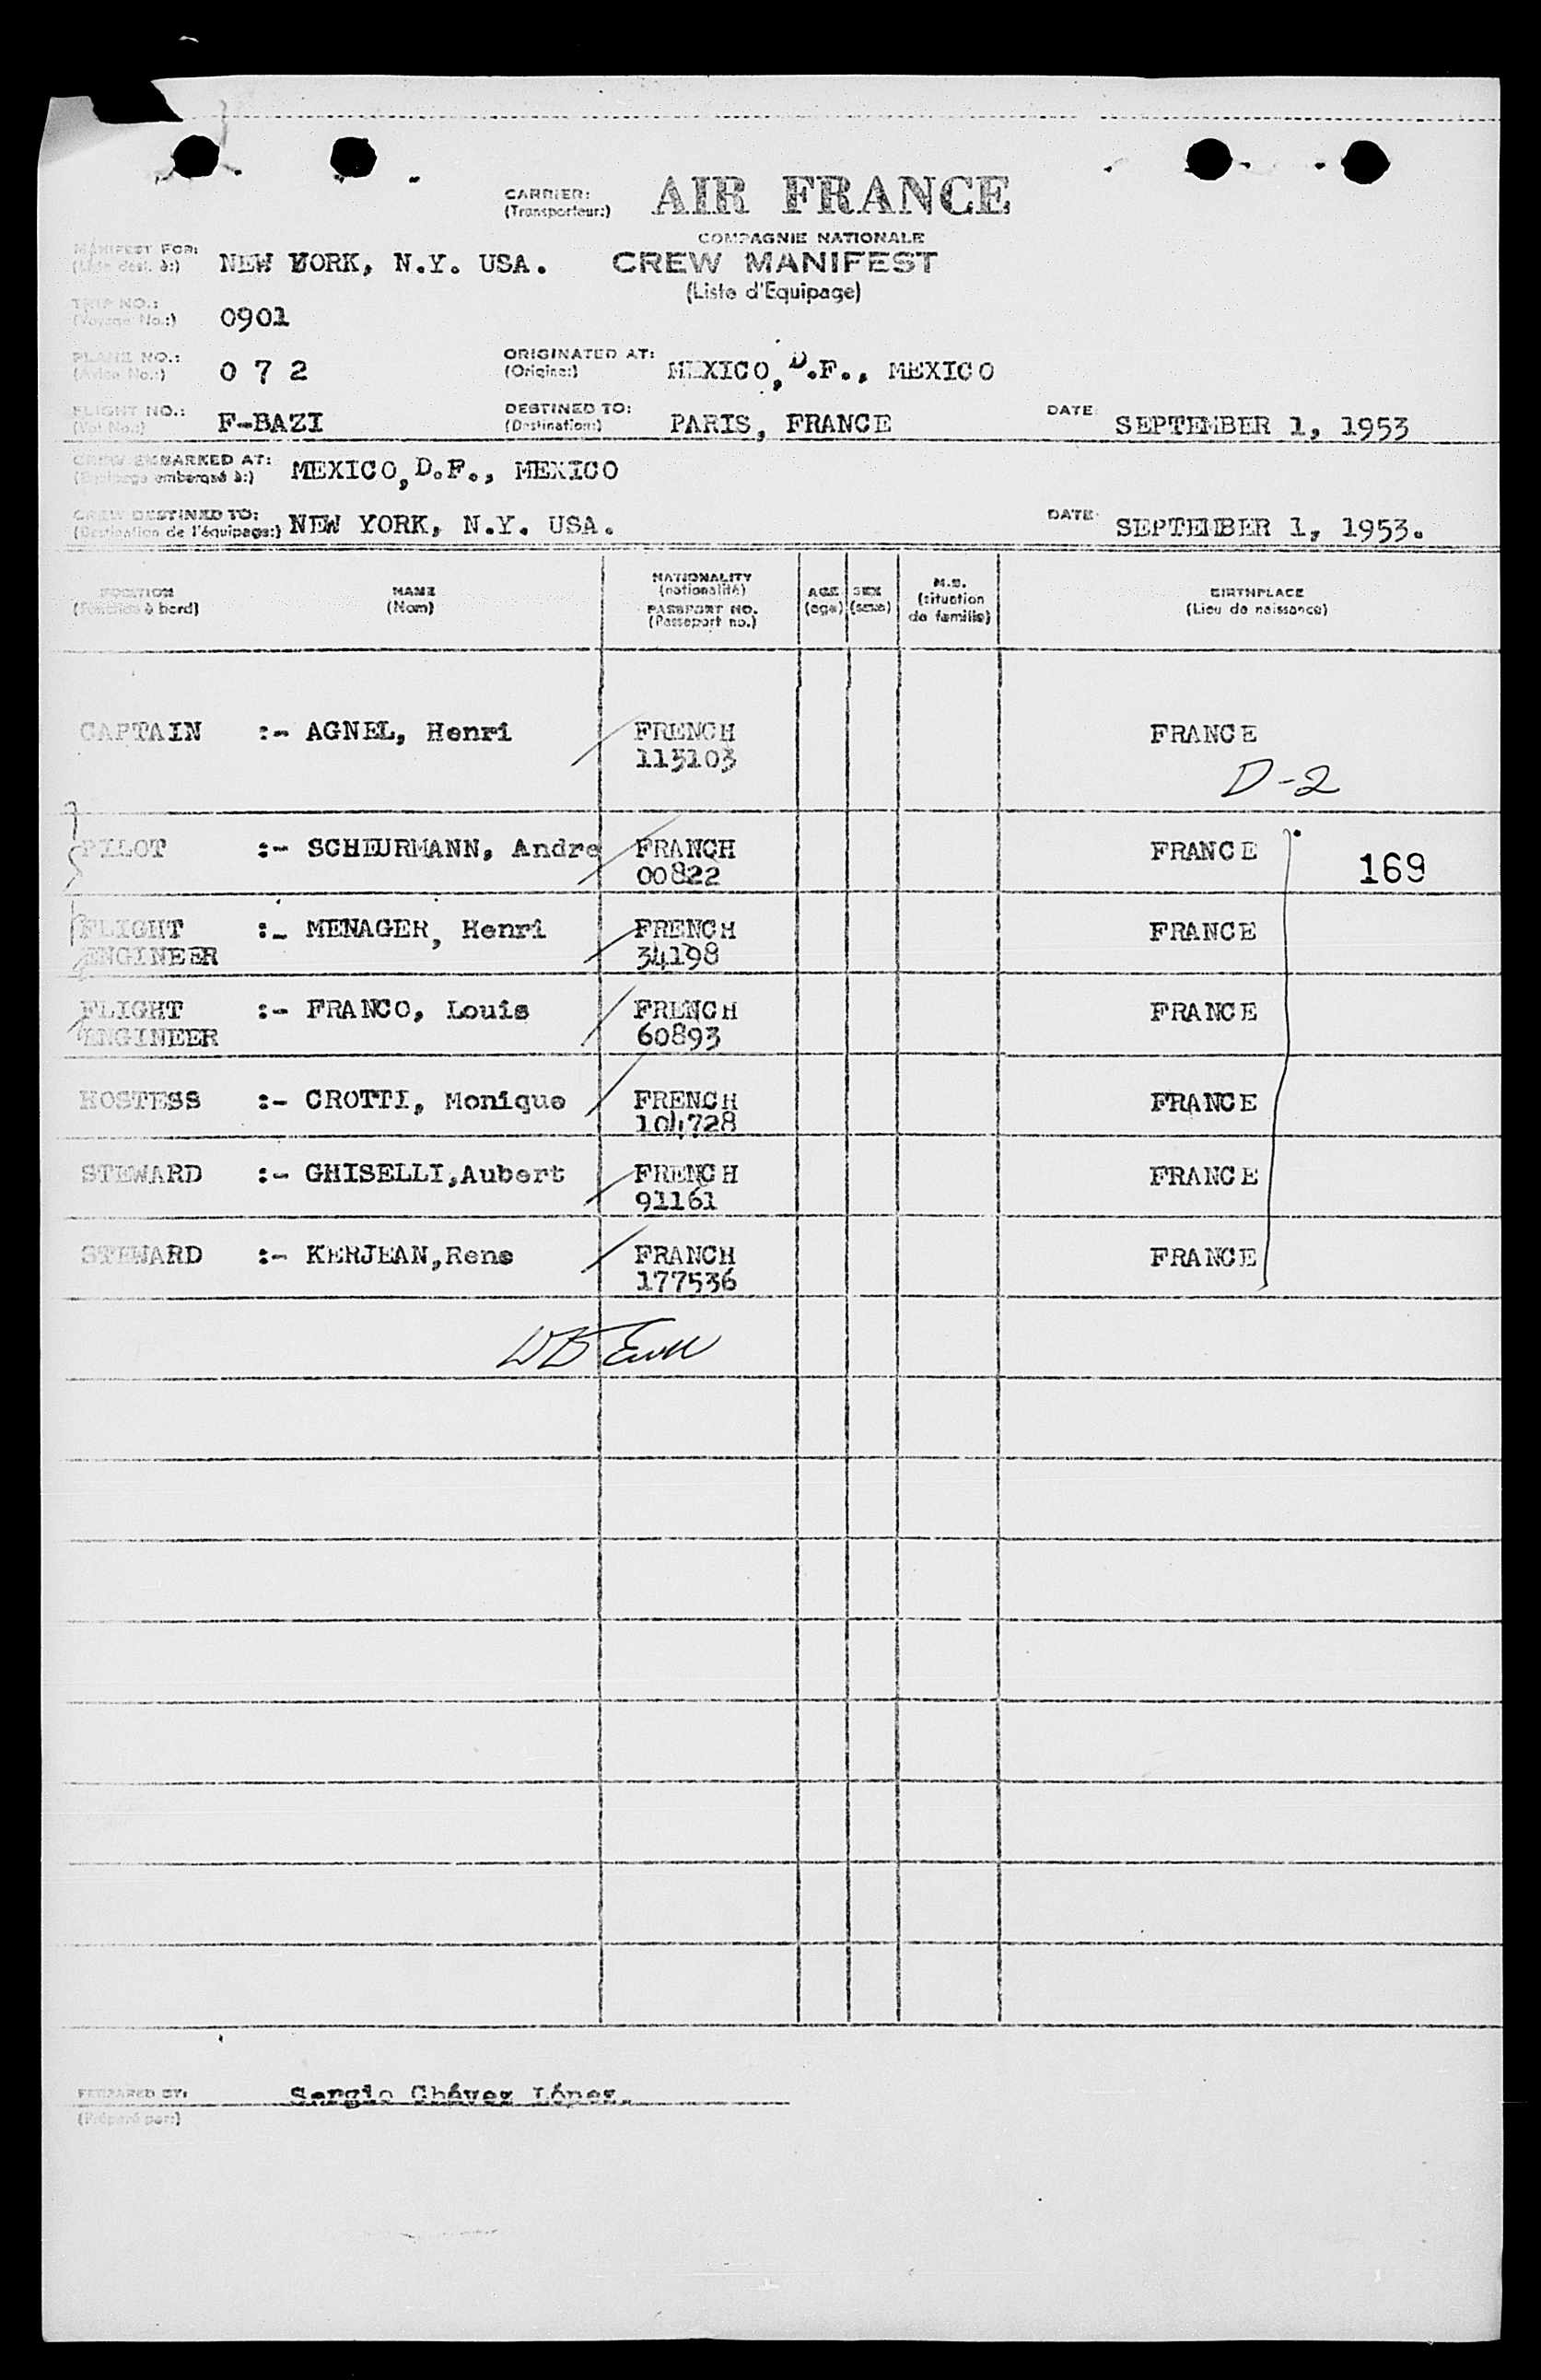 CARRIER: AIR FRANCE
(Transporteur:)
COMPAGNIE NATIONALE
MANIFEST FOR: NEW YORK, N.Y. USA. CREW MANIFEST
(Liste dest. à:)
(Liste d'Equipage)
TRIP NO.: 0901
(Voyage No.:)
PLANE NO.: 0 7 2 ORIGINATED AT: MEXICO, D.F., MEXICO
(Avion No.:) (Origine:)
FLIGHT NO.: F-BAZI DESTINED TO: PARIS, FRANCE DATE: SEPTEMBER 1, 1953
(Vol No.:) (Destination:)
CREW EMBARKED AT: MEXICO, D.F., MEXICO
(Equipage embarqué à:)
CREW DESTINED TO: NEW YORK, N.Y. USA. DATE: SEPTEMBER 1, 1953.
(Destination de l'équipage:)
POSITION NAME NATIONALITY AGE SEX M.S. BIRTHPLACE
(Fonction à bord) (Nom) (nationalité) (age) (sexe) (situation de famille) (Lieu de naissance)
PASSPORT NO.
(Passeport no.)
CAPTAIN :- AGNEL, Henri FRENCH FRANCE
115103
D-2
PILOT :- SCHEURMANN, Andre FRANCH FRANCE
00822 169
FLIGHT :- MENAGER, Henri FRENCH FRANCE
ENGINEER 34198
FLIGHT :- FRANCO, Louis FRENCH FRANCE
ENGINEER 60893
HOSTESS :- CROTTI, Monique FRENCH FRANCE
104728
STEWARD :- GHISELLI,Aubert FRENCH FRANCE
91161
STEWARD :- KERJEAN,Rene FRANCH FRANCE
177536
PREPARED BY: Sergio Chávez López.
(Préparé par:)